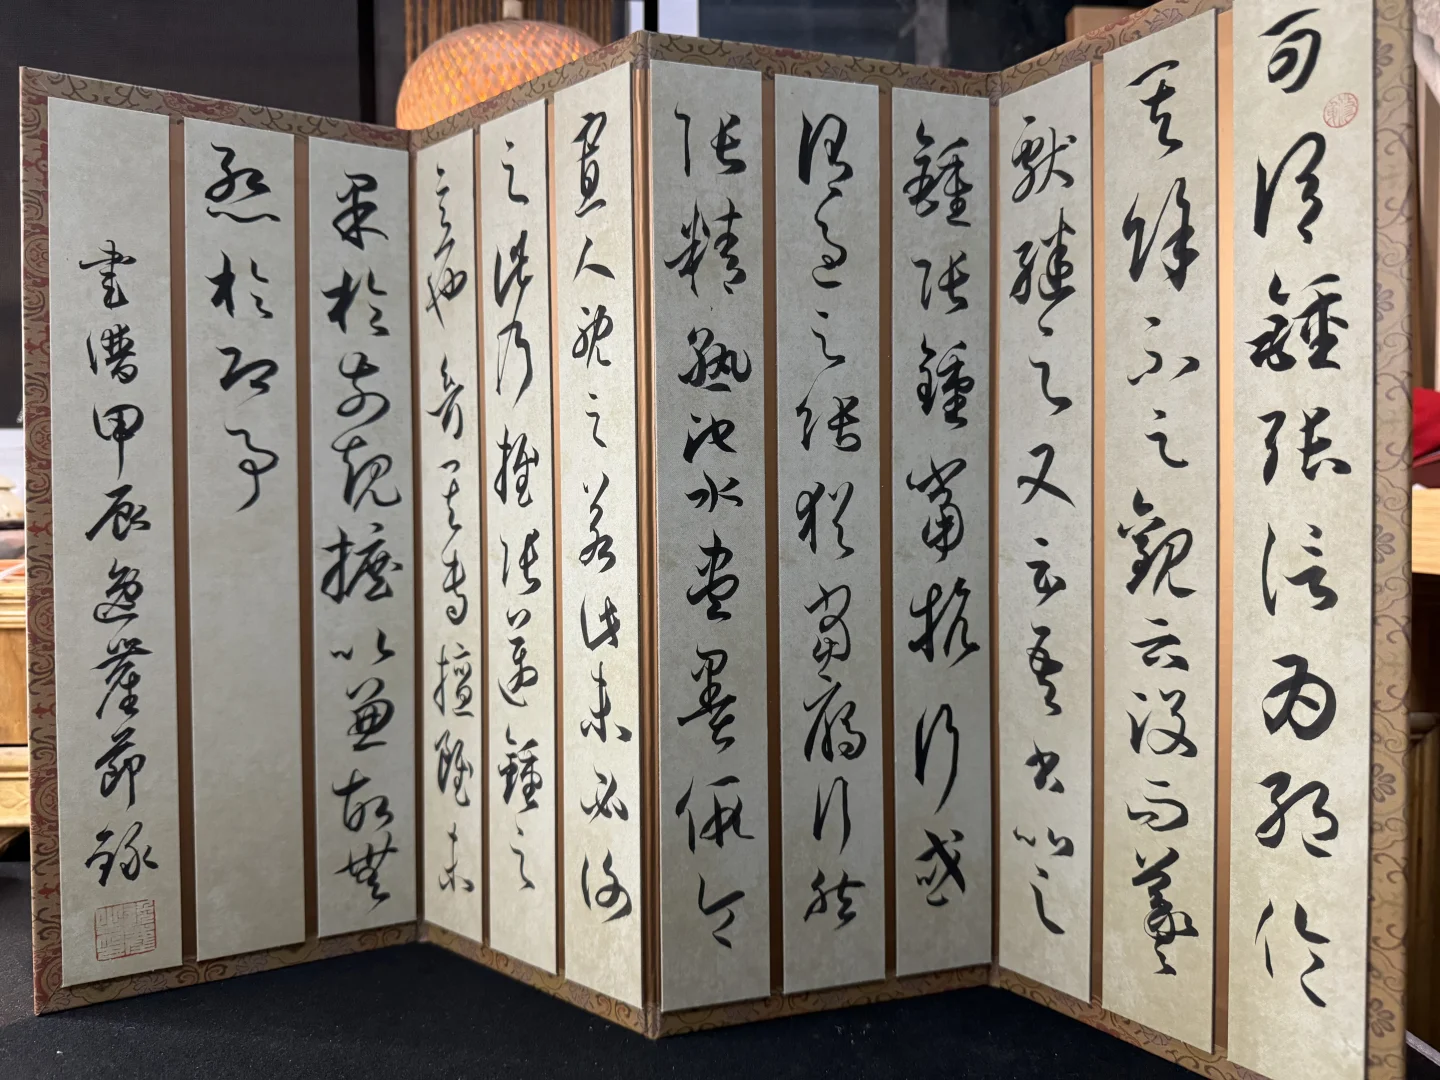 可謂鍾張信為絕倫
其餘不足觀云沒而羲
獻繼之又云吾書比之
鍾張鍾當抗行或
謂過之張猶當雁行然
張精熟池水盡墨假令
寡人耽之若此未必謝
之此乃推張邁鍾之
意也考其專擅雖未
果於前規摭以兼故無
慙於即事
書譜甲辰逸崖節錄